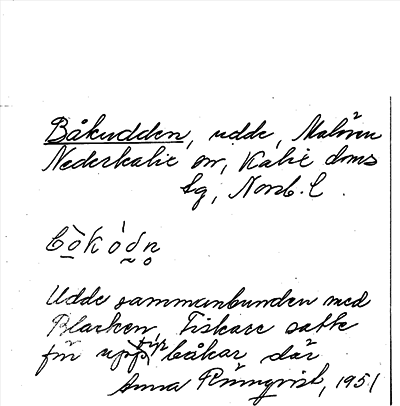 Båkudden, udde, Malören
Nederkalix sn, Kalix doms
sg, Norrb. l.
bòkódn
Udde sammanbunden med
Blacken, Fiskare satte
för upp båkar där
Anna Rönnqvist, 1951